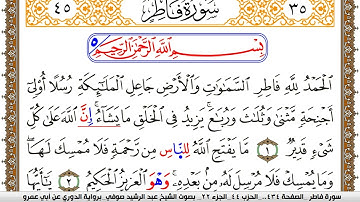 ٣٥ سورة فاطر ٤٥
بِسْمِ اللَّهِ الرَّحْمَٰنِ الرَّحِيمِ
الْحَمْدُ لِلَّهِ فَاطِرِ السَّمَٰوَٰتِ وَالْأَرْضِ جَاعِلِ الْمَلَٰٓئِكَةِ رُسُلًا أُو۟لِىٓ
أَجْنِحَةٍ مَّثْنَىٰ وَثُلَٰثَ وَرُبَٰعَ ۚ يَزِيدُ فِى الْخَلْقِ مَا يَشَآءُ ۚ إِنَّ اللَّهَ عَلَىٰ كُلِّ
شَىْءٍ قَدِيرٌ ١ مَّا يَفْتَحِ اللَّهُ لِلنَّاسِ مِن رَّحْمَةٍ فَلَا مُمْسِكَ لَهَا
وَمَا يُمْسِكْ فَلَا مُرْسِلَ لَهُۥ مِنۢ بَعْدِهِۦ ۚ وَهْوَ الْعَزِيزُ الْحَكِيمُ ٢ يَٰٓأَيُّهَا
سورة فاطر الصفحة ٤٣٤.. الحزب ٤٤ الجزء ٢٢ بصوت الشيخ عبد الرشيد صوفي برواية الدوري عن أبي عمرو